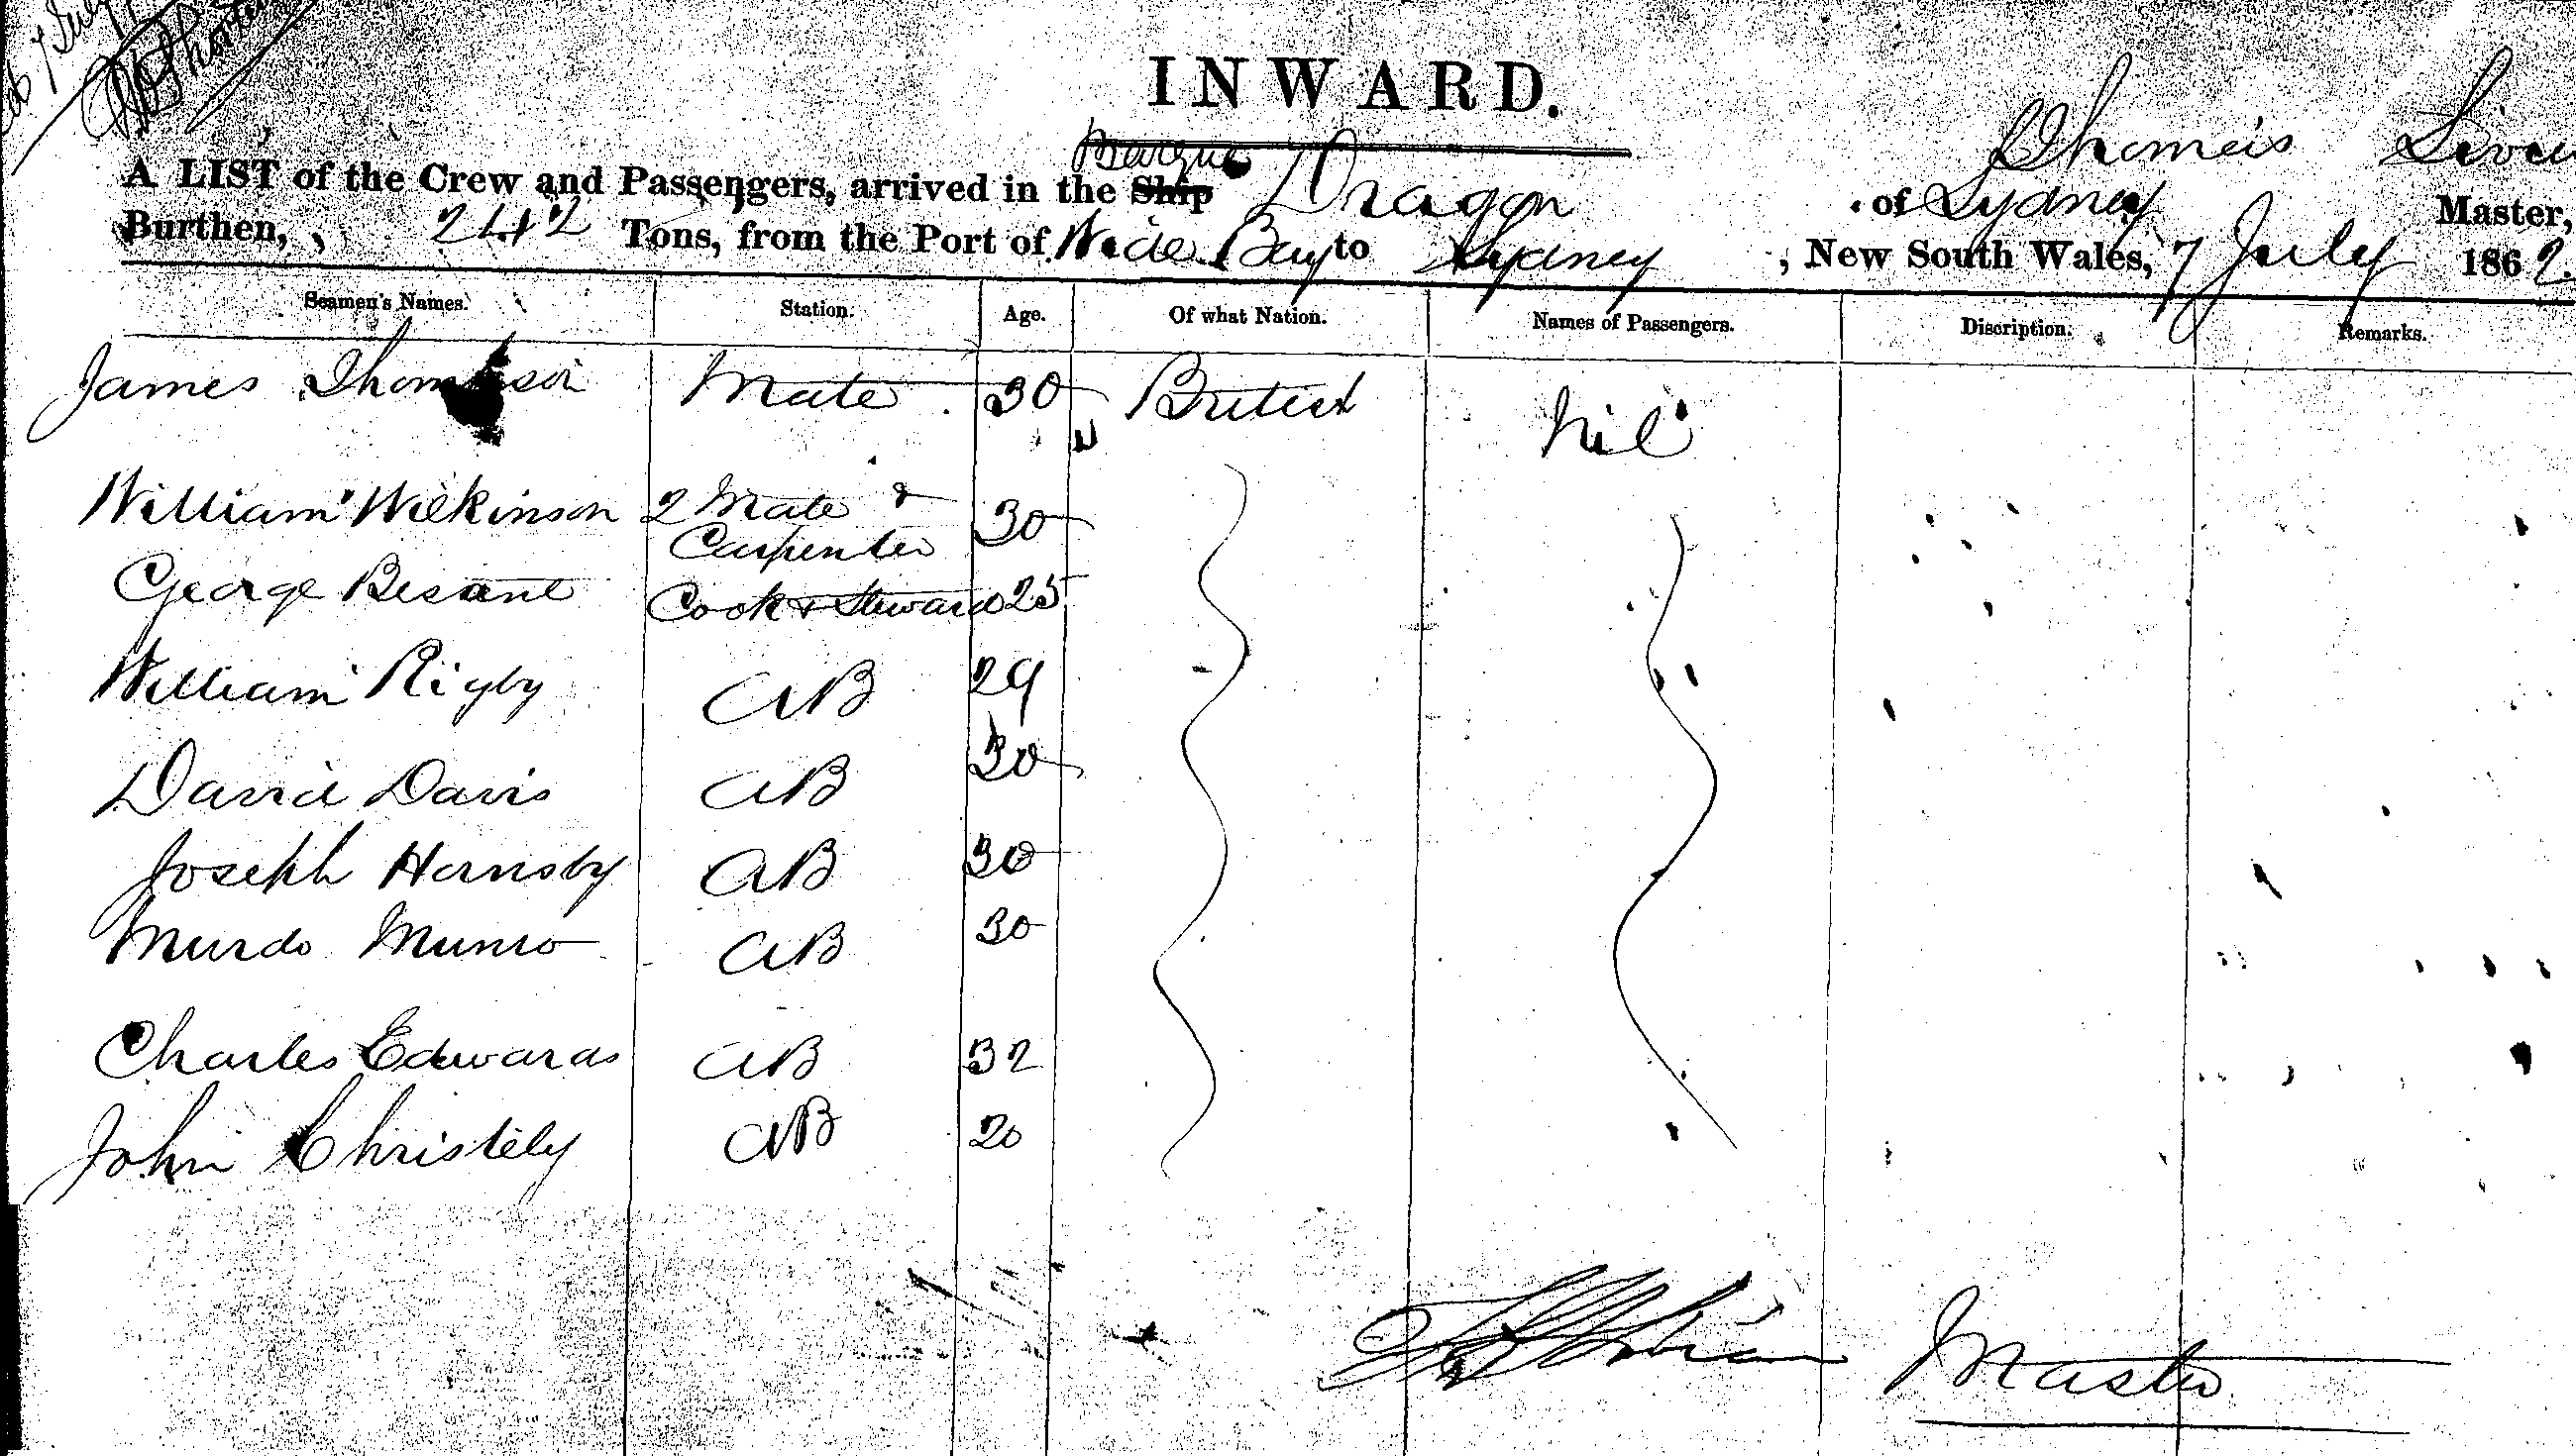 7 July
INWARD.
Barque Thomas
A LIST of the Crew and Passengers, arrived in the Ship Dragon of Sydney Master,
Burthen, 242 Tons, from the Port of Wide Bay to Sydney, New South Wales, 7 July 1862.
Seamen's Names. Station. Age. Of what Nation. Names of Passengers. Discription. Remarks.
James Thompson Mate 30 British Nil
William Wilkinson 2 Mate & Carpenter 30
George Besant Cook & Steward 25
William Rigby AB 29
David Davis AB 30
Joseph Hornsby AB 30
Murdo Munro AB 30
Charles Edwards AB 32
John Christely AB 20
Master